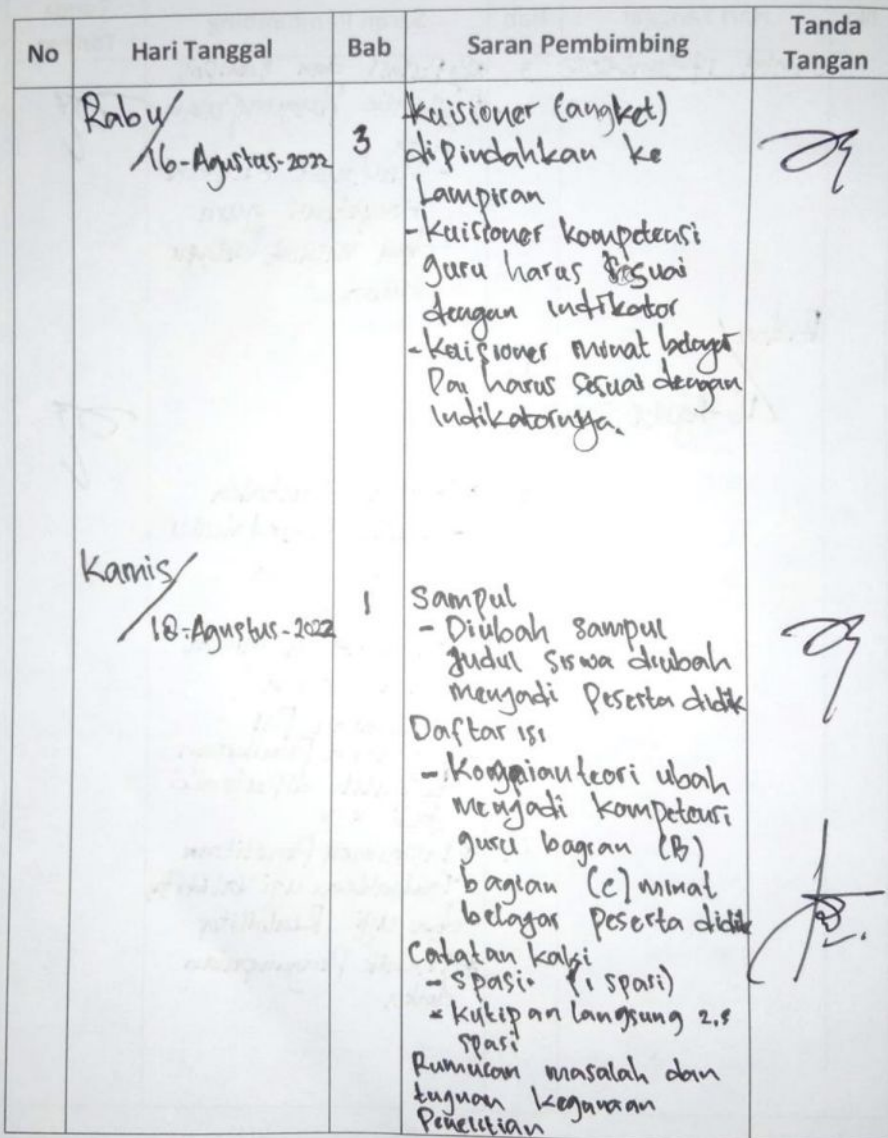 No Hari Tanggal Bab Saran Pembimbing Tanda Tangan
Rabu/ 16-Agustus-2022 3 Kuisioner (angket)
dipindahkan ke
Lampiran
- Kuisioner kompetensi
guru harus sesuai
dengan indikator
- Kuisioner minat belajar
Pai harus sesuai dengan
Indikatornya.
Kamis/ 18-Agustus-2022 1 Sampul
- Diubah sampul
Judul siswa diubah
menjadi Peserta didik
Daftar isi
- teori ubah
menjadi kompetensi
guru bagian (B)
bagian (C) minat
belajar peserta didik
Catatan kaki
- spasi. (1 spasi)
* kutipan langsung 2,5
spasi
Rumusan masalah dan
tujuan kegunaan
Penelitian